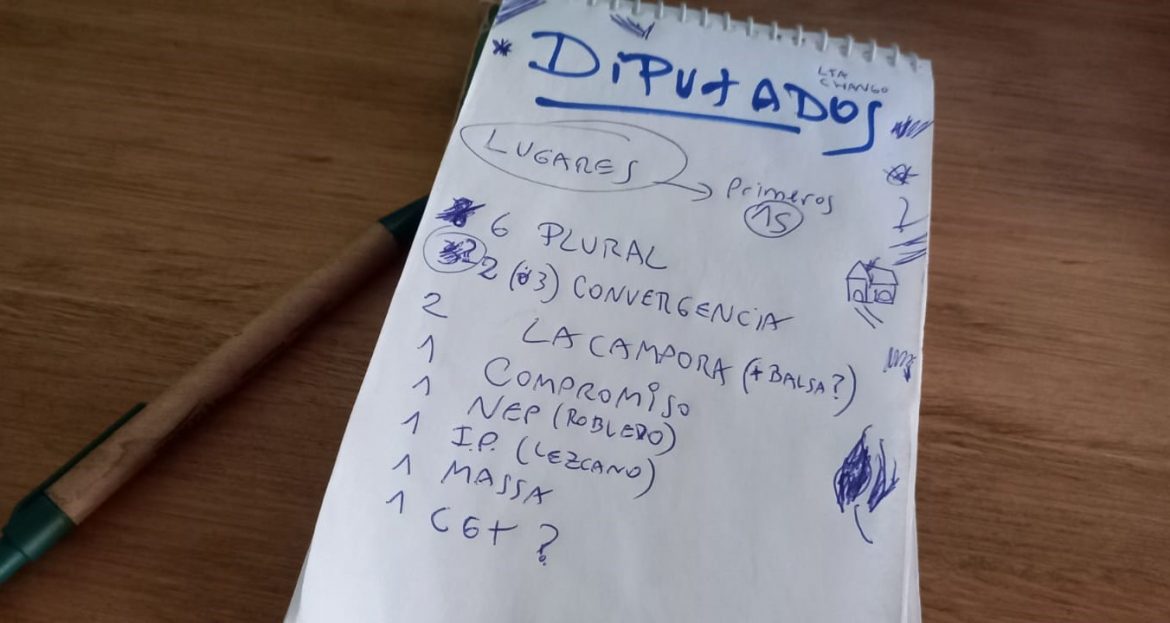 * DiPUtADOS
LTA
CHANGO
LUGARES → Primeros
15
6 PLURAL
2 (ó 3) CONVERGENCIA
2 LA CAMPORA (+ BALSA?)
1 COMPROMiSO
1 NEP (ROBLEDO)
1 I.P. (LEZCANO)
1 MASSA
1 CGT ?